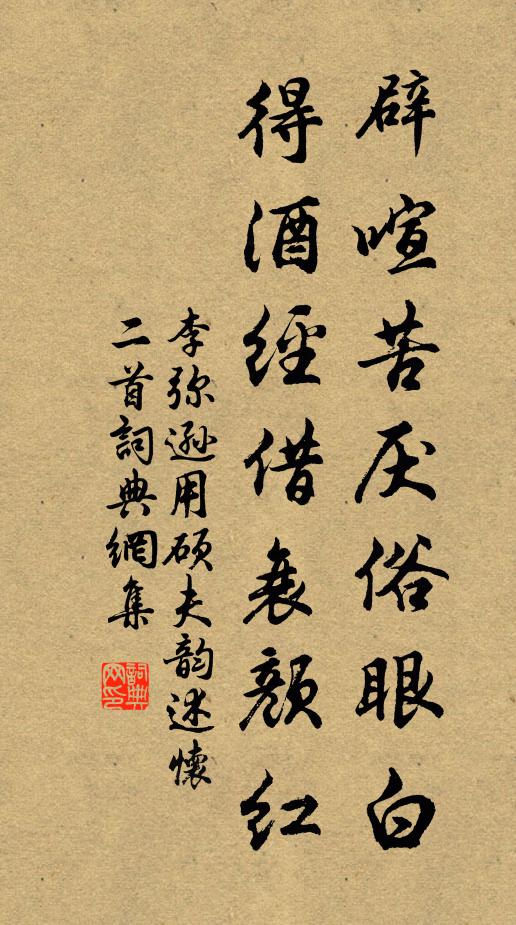 辟喧苦厌俗眼白
得酒經借衰顏紅
李弥遜用硕夫韵述懷
二首詞典網集
詞典網印